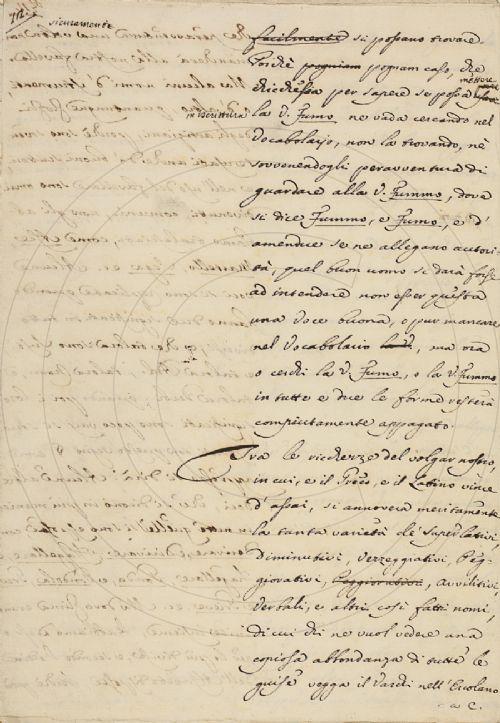 sicuramente
facilmente si possano trovare.
Poichè pogniam pogniam caso, che
chicchessia per sapere se possa usare mettere
in iscrittura
la V. Fumo ne vada cercando nel
Vocabolario, non la trovando, nè
sovvenendogli peravventura di
guardare alla V. Fummo, dove
si dice Fummo, e Fumo, e d'
amendue se ne allegano autori-
tà, quel buon uomo si darà forse
ad intendere non esser questa
una voce buona, e pur mancare
nel Vocabolario, ma ora
o cerchi la V. Fumo, o la V. Fummo
in tutte e due le forme resterà
compiutamente appagato.
Tra le ricchezze del volgar nostro,
in cui, e il Greco, e il Latino vince
d'assai, si annovera meritamente
la tanta varietà de' Superlativi
Diminutivi, Vezzeggiativi, Peg-
giorativi, Peggiorativi, Avvilitivi,
Verbali, e altri così fatti nomi,
di cui chi ne vuol vedere una
copiosa abbondanza di tutte le
guise vegga il Varchi nell'Ercolano
a c.